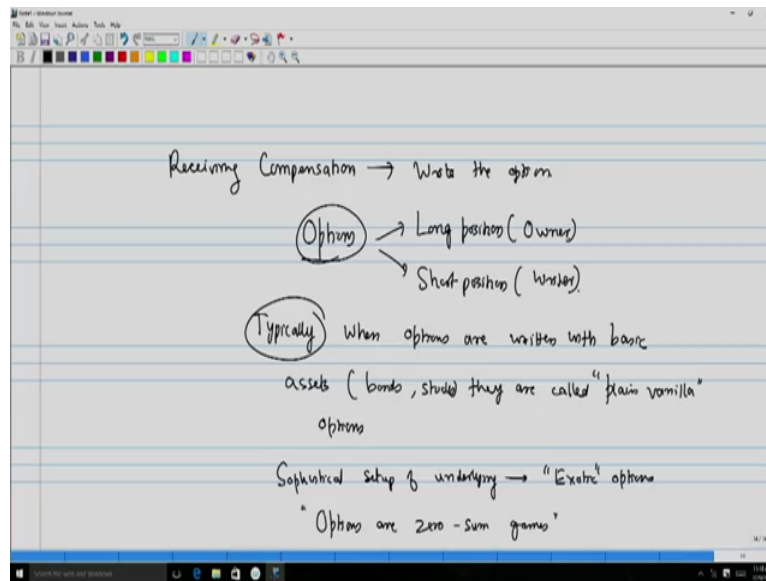 File Edit View Insert Actions Tools Help
B I
Receiving Compensation → Wrote the option
Options → Long position (Owner)
→ Short position (Writer).
Typically when options are written with basic
assets (bonds, stocks) they are called "plain vanilla"
options
Sophistical setup of underlying → "Exotic" options
"Options are zero-sum games"